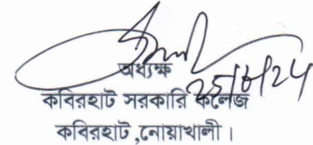 অধ্যক্ষ
কবিরহাট সরকারি কলেজ
কবিরহাট ,নোয়াখালী ।